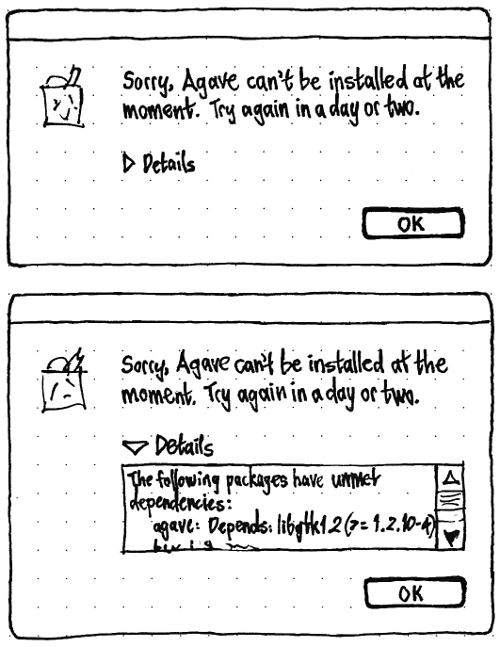 Sorry, Agave can't be installed at the
moment. Try again in a day or two.
Details
OK
Sorry, Agave can't be installed at the
moment. Try again in a day or two.
Details
The following packages have unmet
dependencies:
agave: Depends: libgtk1.2 (>= 1.2.10-4)
OK